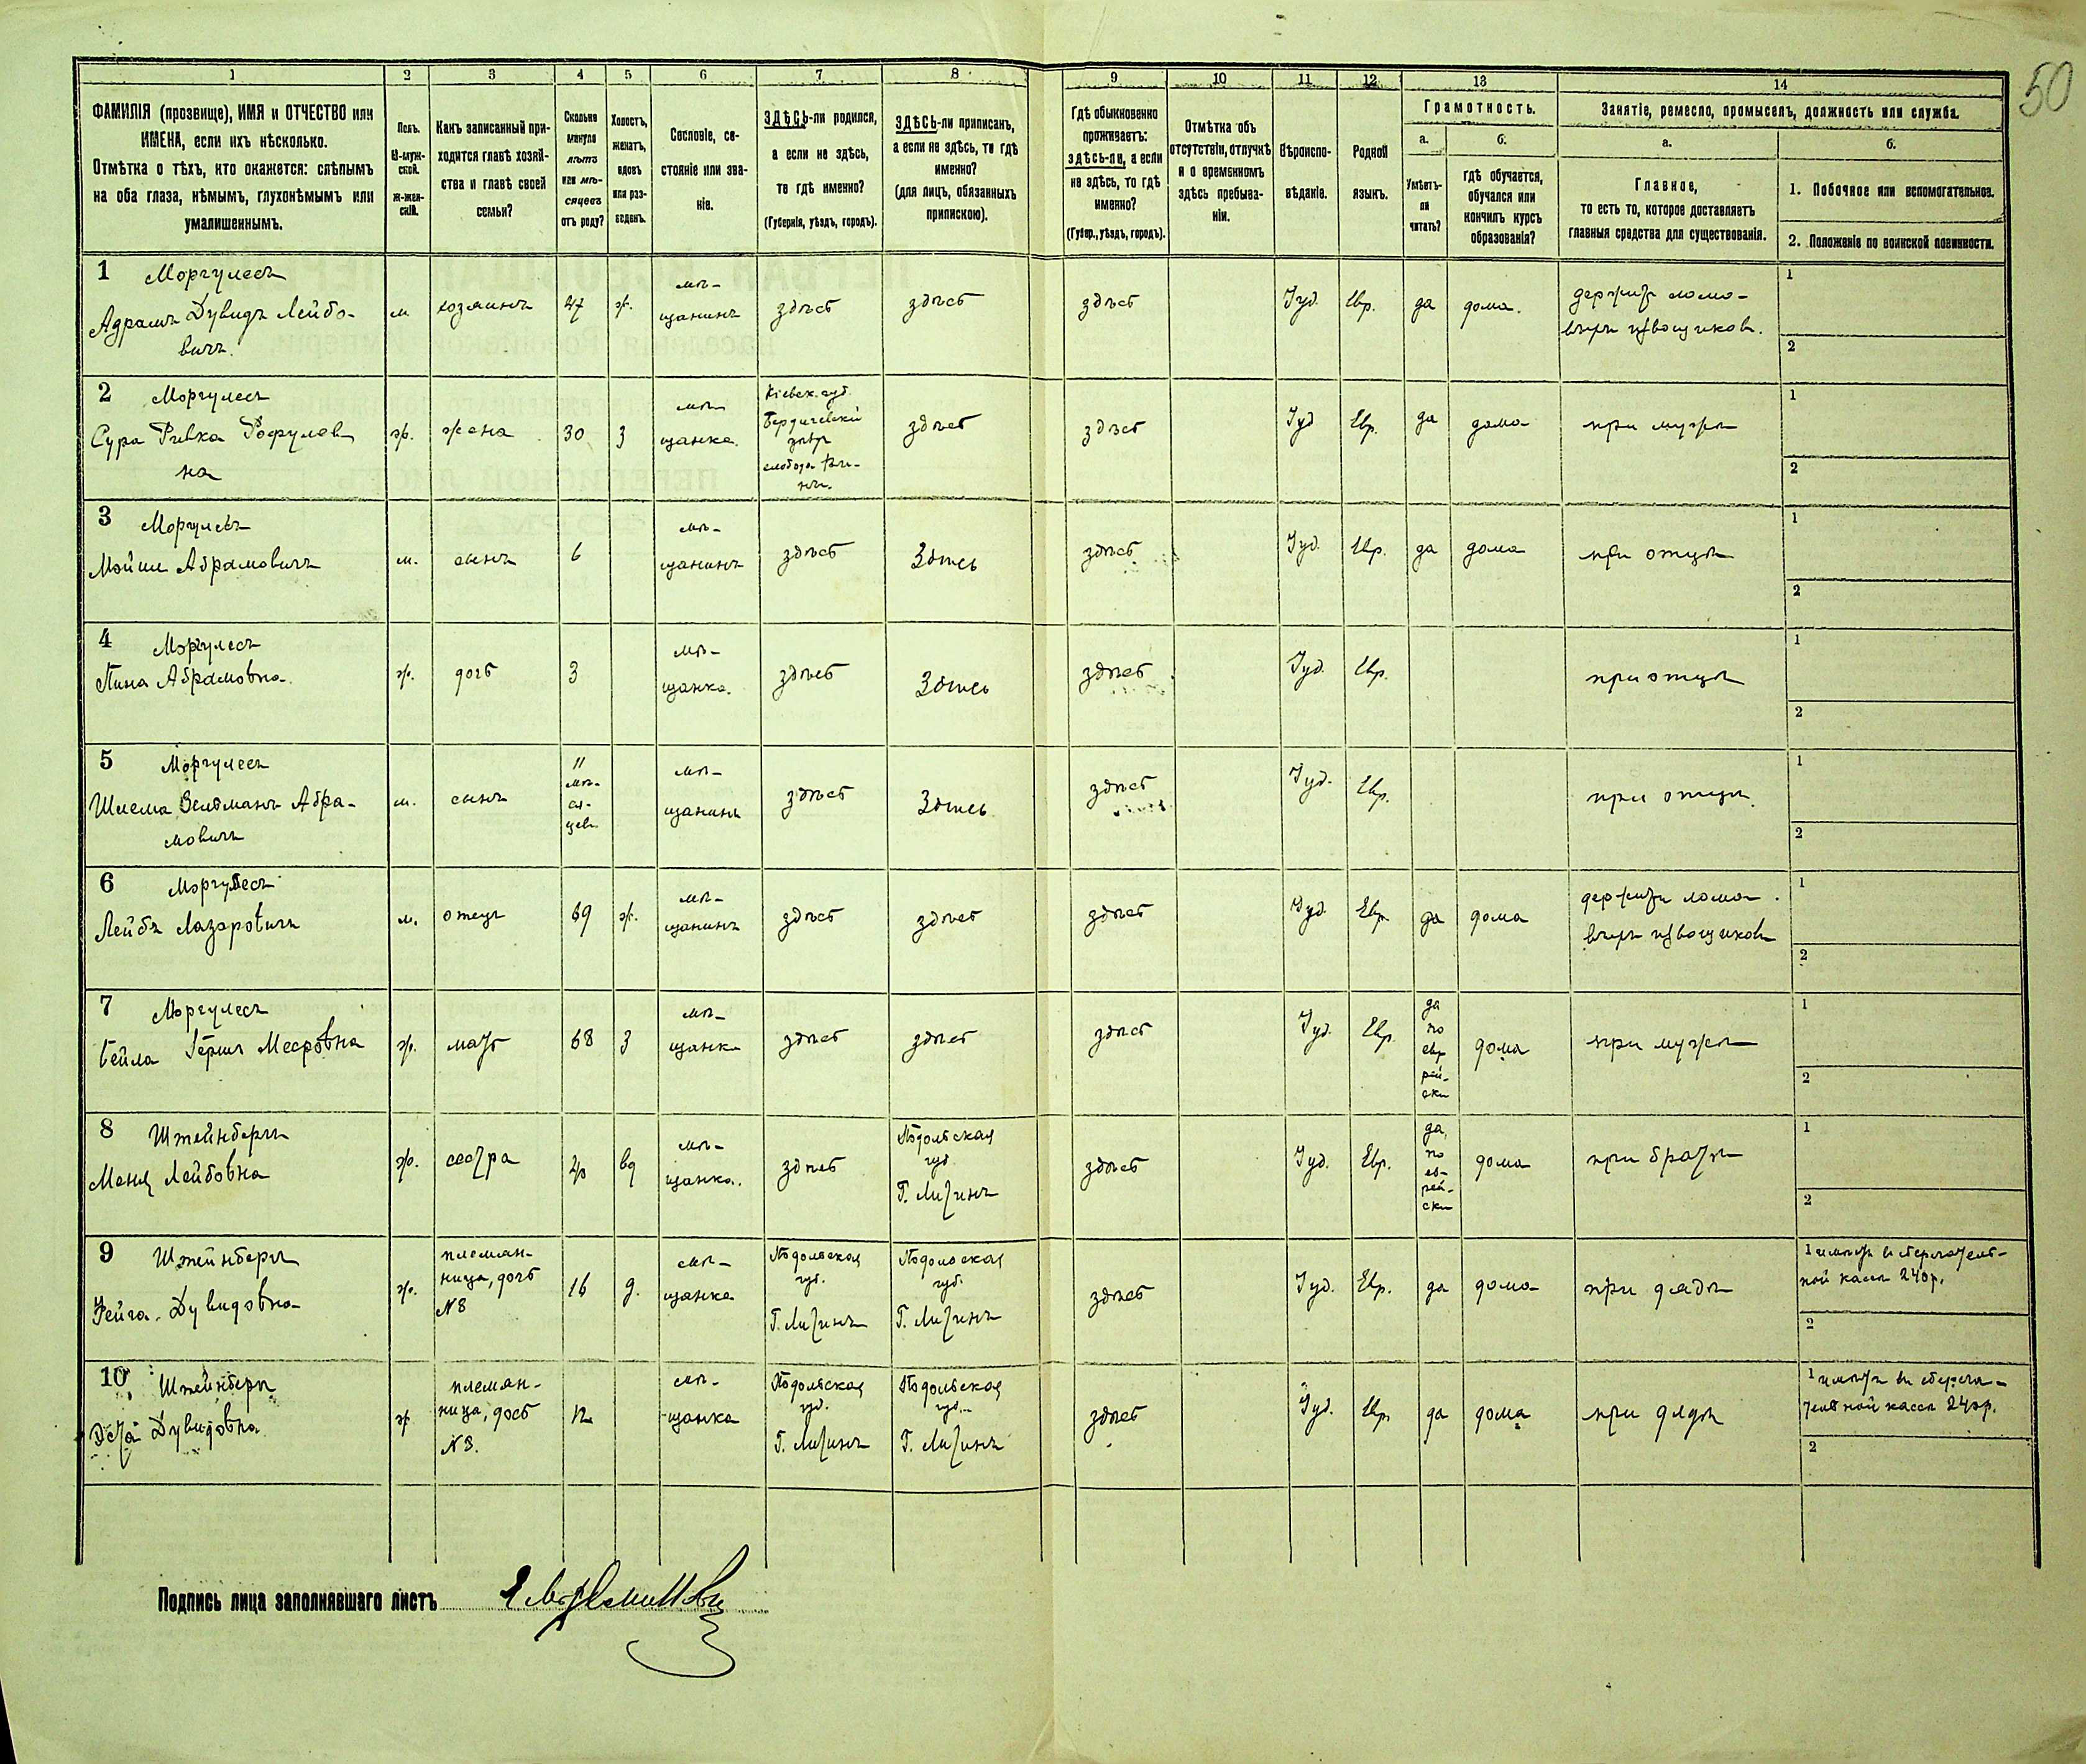 50
1 2 3 4 5 6 7 8 9 10 11 12 13 14
ФАМИЛІЯ (прозвище), ИМЯ и ОТЧЕСТВО или
ИМЕНА, если ихъ нѣсколько.
Отмѣтка о тѣхъ, кто окажется: слѣпымъ
на оба глаза, нѣмымъ, глухонѣмымъ или
умалишеннымъ.
Полъ.
М-муж-
ской.
ж-жен-
скій.
Какъ записанный при-
ходится главѣ хозяй-
ства и главѣ своей
семьи?
Сколько
минуло
лѣтъ
или мѣ-
сяцевъ
отъ роду?
Холостъ,
женатъ,
вдовъ
или раз-
веденъ.
Сословіе, со-
стояніе или зва-
ніе.
ЗДѢСЬ-ли родился,
а если не здѣсь,
то гдѣ именно?
(Губернія, уѣздъ, городъ).
ЗДѢСЬ-ли приписанъ,
а если не здѣсь, то гдѣ
именно?
(для лицъ, обязанныхъ
припискою).
Гдѣ обыкновенно
проживаетъ:
здѣсь-ли, а если
не здѣсь, то гдѣ
именно?
(Губер., уѣздъ, городъ).
Отмѣтка объ
отсутствіи, отлучкѣ
и о временномъ
здѣсь пребыва-
ніи.
Вѣроиспо-
вѣданіе.
Родной
языкъ.
Грамотность.
а.
Умѣетъ-
ли
читать?
б.
гдѣ обучается,
обучался или
кончилъ курсъ
образованія?
Занятіе, ремесло, промыселъ, должность или служба.
а.
Главное,
то есть то, которое доставляетъ
главныя средства для существованія.
б.
1. Побочное или вспомогательное.
2. Положеніе по воинской повинности.
1 Моргулесъ
Абрамъ Дувидъ Лейбо-
вичъ.
м. хозяинъ 47 ж. мѣ-
щанинъ здѣсь здѣсь здѣсь Іуд. Евр. да дома.
держитъ ломо-
выхъ извощиковъ.
1
2
2 Моргулесъ
Сура Ривка Рофулов
на
ж. жена 30 з мѣ-
щанка.
Кіевск. губ.
Бердичевскій
уѣздъ
слобода
здѣсь здѣсь Іуд Евр. да дома при мужѣ
1
2
3 Моргулесъ
Мойше Абрамовичъ
м. сынъ 6 мѣ-
щанинъ здѣсь Здѣсь здѣсь Іуд. Евр. да дома при отцѣ
1
2
4 Моргулесъ
Пина Абрамовна.
ж. дочь 3 мѣ-
щанка. здѣсь Здѣсь здѣсь Іуд. Евр. при отцѣ
1
2
5 Моргулесъ
Шлема Зельманъ Абра-
мовичъ
м. сынъ
11
мѣ-
ся-
цев
мѣ-
щанинъ здѣсь Здѣсь здѣсь Іуд. Евр. при отцѣ.
1
2
6 Моргулесъ
Лейбъ Лазаровичъ
м. отецъ 69 ж. мѣ-
щанинъ здѣсь здѣсь здѣсь Іуд. Евр. да дома
держитъ ломо-
выхъ извощиковъ
1
2
7 Моргулесъ
Бейла Гершъ Мееровна
ж. мать 68 з мѣ-
щанка здѣсь здѣсь здѣсь Іуд. Евр.
да
по
евр
рей-
ски
дома при мужѣ
1
2
8 Штейнбергъ
Меня Лейбовна
ж. сестра 40 вд мѣ-
щанка. здѣсь
Подольская
губ.
Г. Литинъ
здѣсь Іуд. Евр.
да,
по
ев-
рей-
ски
дома при братѣ
1
2
9 Штейнбергъ
Фейга Дувидовна
ж.
племян-
ница, дочь
№8
16 д. мѣ-
щанка
Подольская
губ.
Г. Литинъ
Подольская
губ.
Г. Литинъ
здѣсь Іуд. Евр. да дома при дядѣ
1 имѣетъ въ сберегатель-
ной кассѣ 240р.
2
10 Штейнбергъ
Эстя Дувидовна.
ж
племян-
ница, дочь
№8.
12 мѣ-
щанка
Подольская
губ.
Г. Литинъ
Подольская
губ.
Г. Литинъ
здѣсь Іуд. Евр. да дома при дядѣ
1 имѣетъ въ сберега-
тельной кассѣ 240р.
2
Подпись лица заполнявшаго листъ